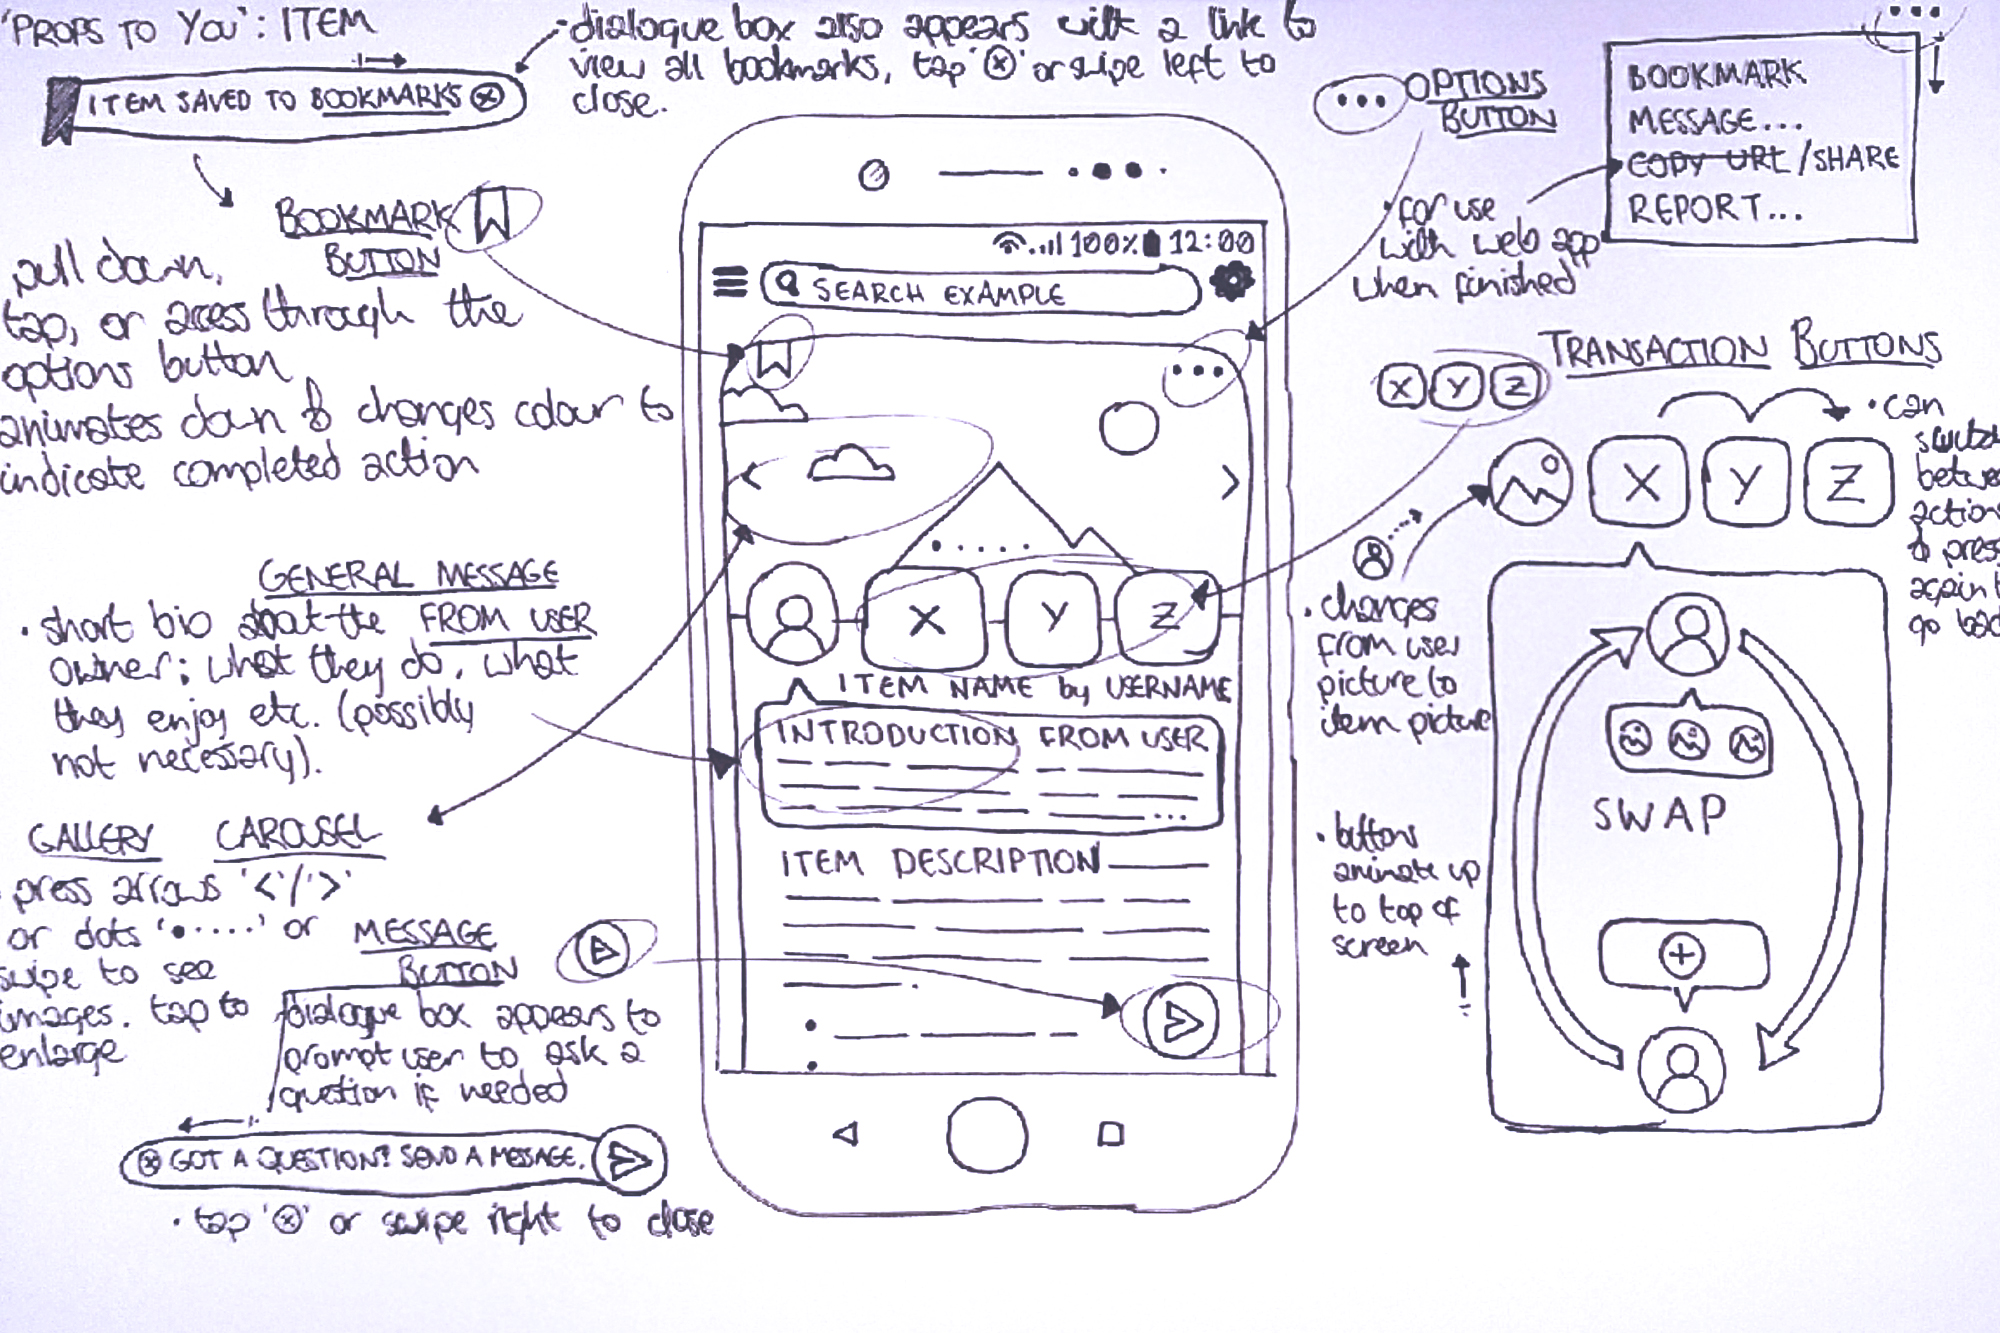 'PROPS TO YOU': ITEM
ITEM SAVED TO BOOKMARKS ⓧ
• dialogue box also appears with a link to
view all bookmarks, tap 'ⓧ' or swipe left to
close.
BOOKMARK
BUTTON
pull down,
tap, or access through the
options button
animates down & changes colour to
indicate completed action
GENERAL MESSAGE
FROM USER
• short bio about the
owner: what they do, what
they enjoy etc. (possibly
not necessary).
GALLERY CAROUSEL
press arrows '<'/'>'
or dots '•.....' or
swipe to see
images. tap to
enlarge
MESSAGE
BUTTON
dialogue box appears to
prompt user to ask a
question if needed
ⓧ GOT A QUESTION? SEND A MESSAGE.
• tap 'ⓧ' or swipe right to close
100% 12:00
SEARCH EXAMPLE
X Y Z
ITEM NAME by USERNAME
INTRODUCTION FROM USER
...
ITEM DESCRIPTION
... OPTIONS
BUTTON
BOOKMARK
MESSAGE...
COPY URL /SHARE
REPORT...
• for use
with web app
when finished
TRANSACTION BUTTONS
X Y Z
X Y Z
• can
switch
between
action
& press
again t
go bac
• changes
from user
picture to
item picture
• buttons
animate up
to top of
screen
SWAP